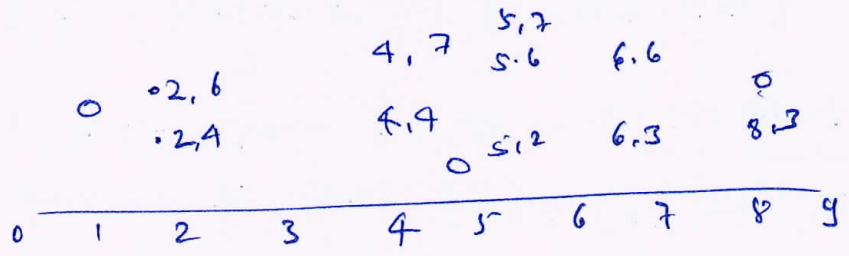 5,7
4,7 5.6 6.6
.2,6
.2,4 4,4 5,2 6,3 8,3
0 1 2 3 4 5 6 7 8 9